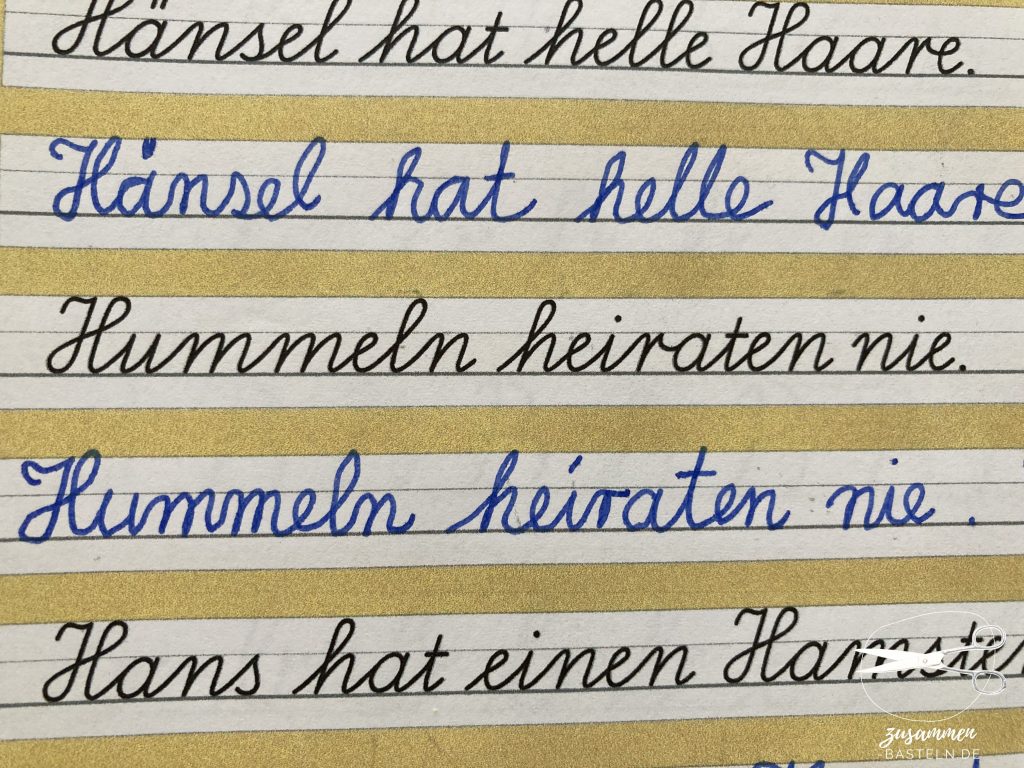 Hänsel hat helle Haare.
Hänsel hat helle Haare
Hummeln heiraten nie.
Hummeln heiraten nie.
Hans hat einen Hamster
zusammen
-BASTELN.DE